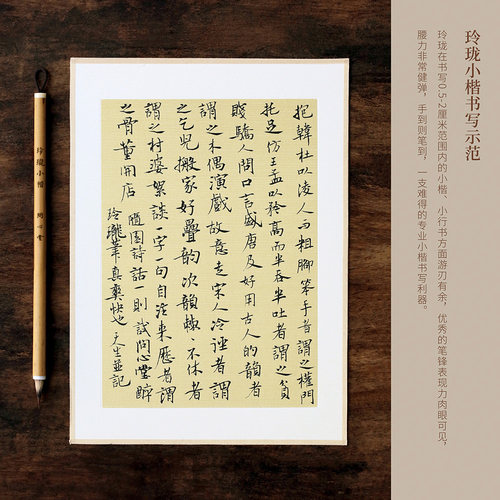 玲珑小楷书写示范
玲珑在书写0.5-2厘米范围内的小楷、小行书方面游刃有余，优秀的笔锋表现力肉眼可见，
腰力非常健弹，手到则笔到，一支难得的专业小楷书写利器。
抱韓杜以凌人而粗腳笨手者謂之權門
托足仿王孟以矜高而半吞半吐者謂之貧
賤驕人開口言盛唐及好用古人韻者
謂之木偶演戲故意走宋人冷逕者謂
之乞兒搬家好疊韵次韻刺刺不休者
謂之村婆絮談一字一句自注來歷者謂
之骨董開店
隨園詩話一則試問心堂
玲瓏筆真爽快也天生並記
玲珑小楷 問心堂